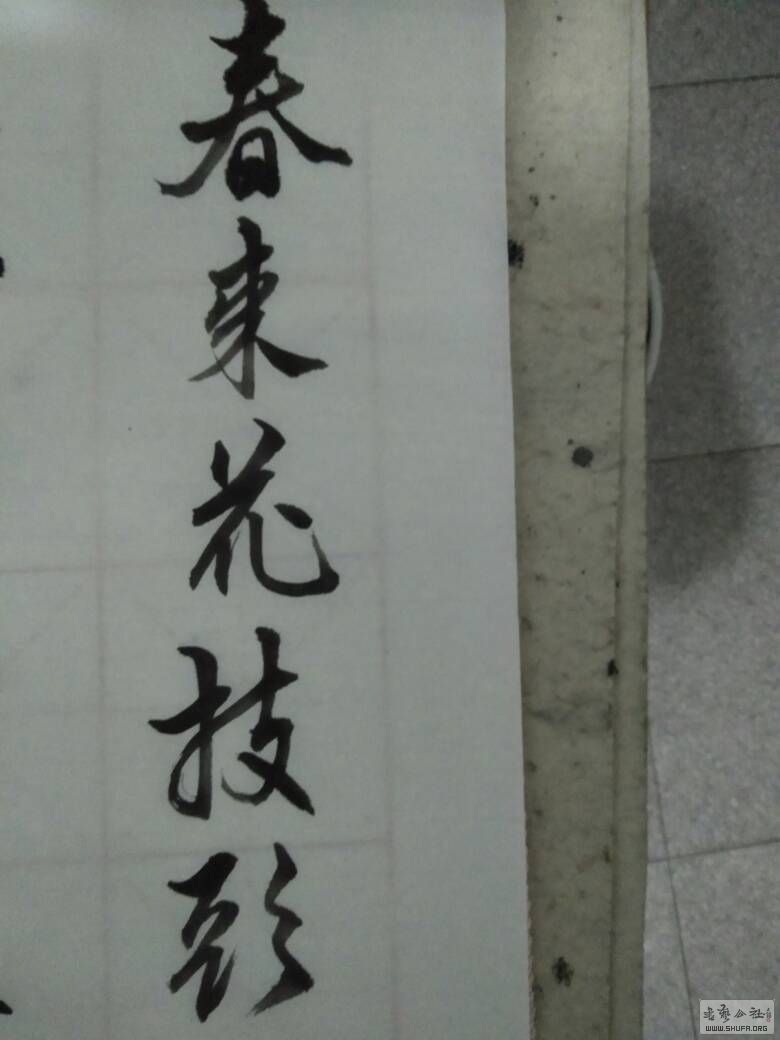 春来花技頭
書藝公社
WWW.SHUFA.ORG